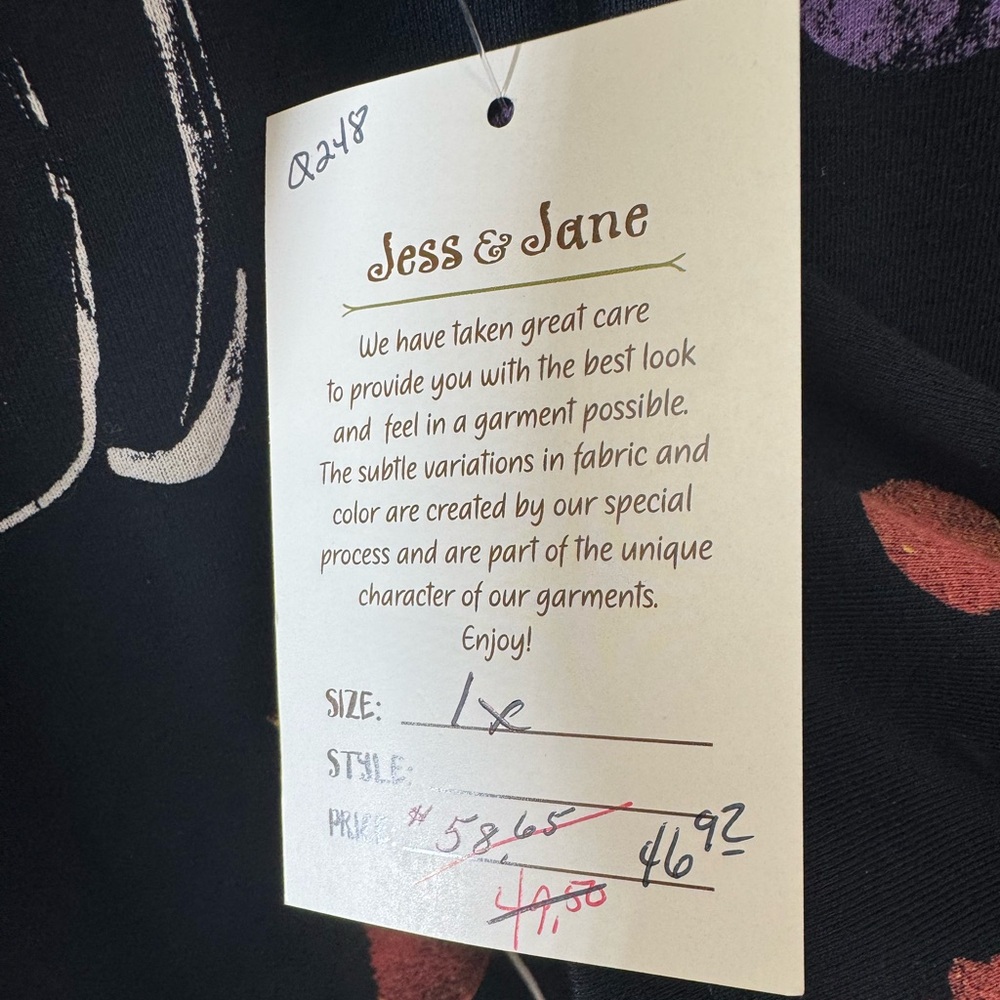 Q248
Jess & Jane
We have taken great care
to provide you with the best look
and feel in a garment possible.
The subtle variations in fabric and
color are created by our special
process and are part of the unique
character of our garments.
Enjoy!
SIZE: 1x
STYLE:
PRICE: $58.65 46.92
49.50